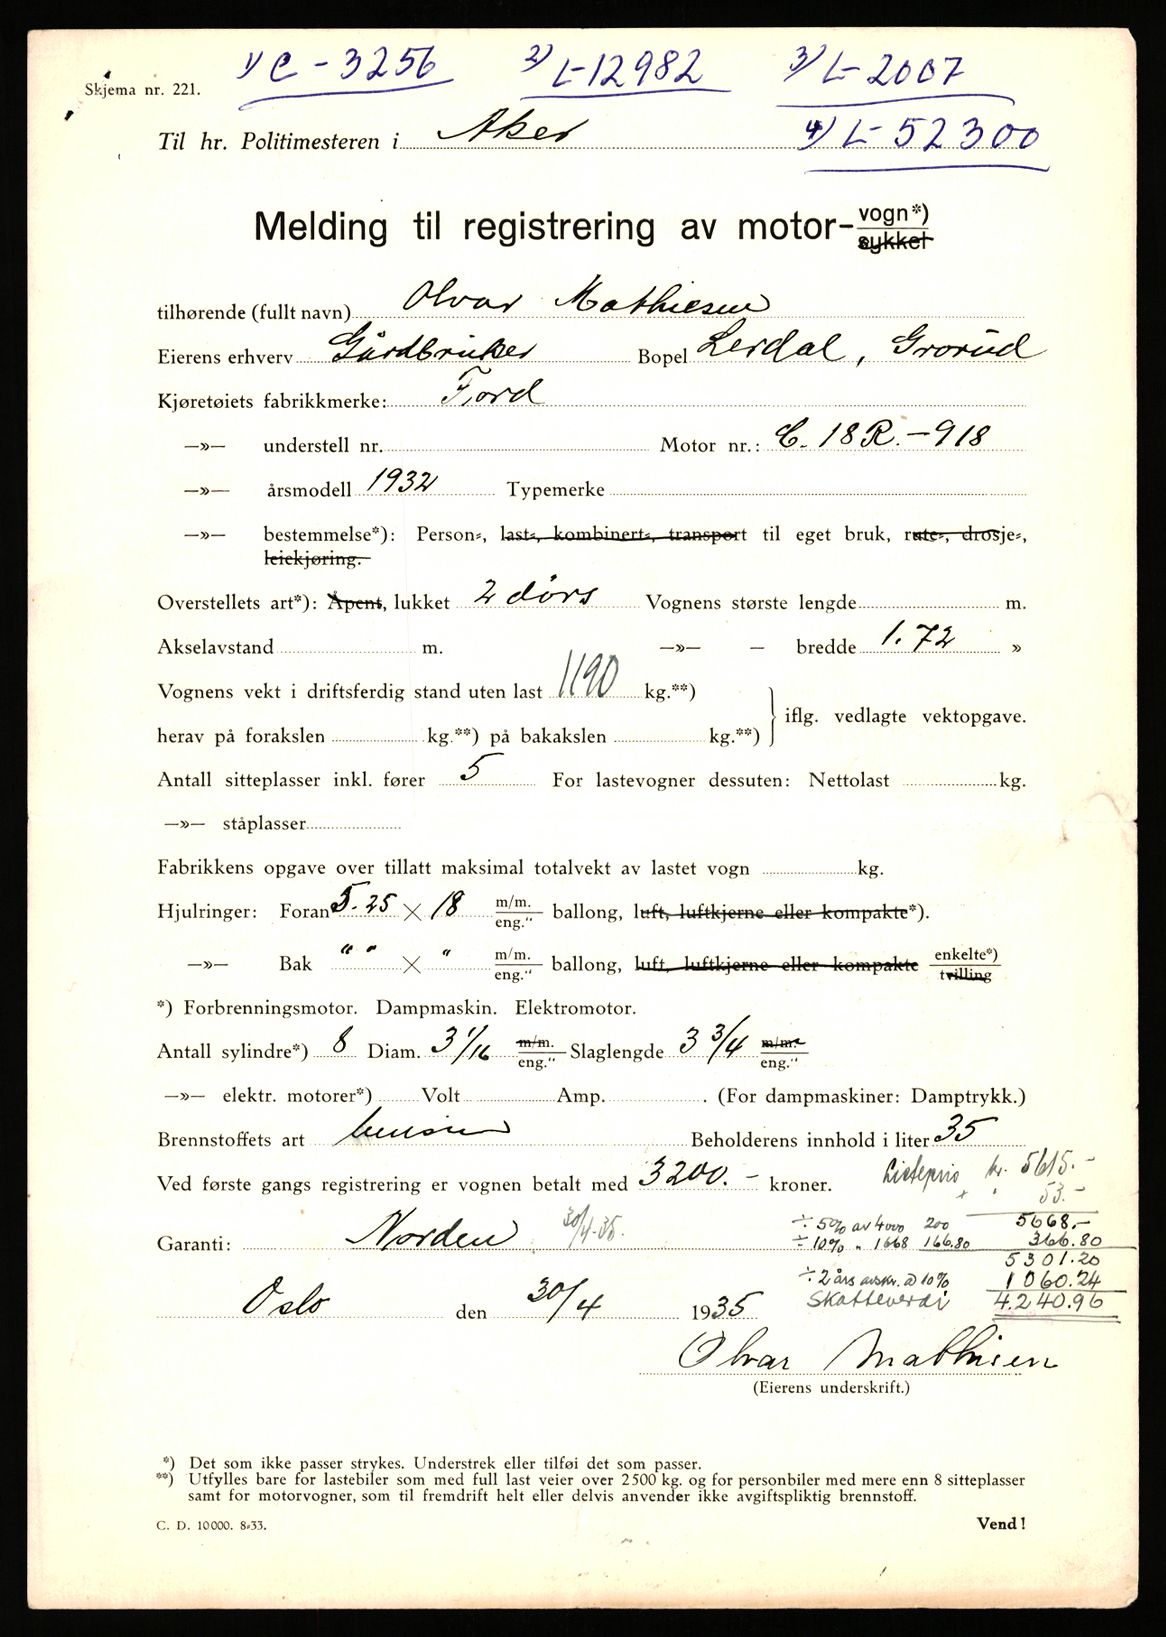 1) C - 3256 2) L-12982 3) L-2007
Skjema nr. 221.
Til hr. Politimesteren i Aker 4) L-52300
Melding til registrering av motor-vogn*)
sykkel
tilhørende (fullt navn) Olvar Mathiesen
Eierens erhverv Gårdbruker Bopel Lerdal, Grorud
Kjøretøiets fabrikkmerke: Ford
—»— understell nr. Motor nr.: C. 18 R. - 918
—»— årsmodell 1932 Typemerke
—»— bestemmelse*): Person-, last-, kombinert-, transport til eget bruk, rute-, drosje-,
leiekjøring.
Overstellets art*): Åpent, lukket 2 dörs Vognens største lengde m.
Akselavstand m. —»— — bredde 1.72 »
Vognens vekt i driftsferdig stand uten last 1190 kg.**)
iflg. vedlagte vektopgave.
herav på forakslen kg.**) på bakakslen kg.**)
Antall sitteplasser inkl. fører 5 For lastevogner dessuten: Nettolast kg.
—»— ståplasser
Fabrikkens opgave over tillatt maksimal totalvekt av lastet vogn kg.
Hjulringer: Foran 5.25 × 18 m/m. eng." ballong, luft, luftkjerne eller kompakte*).
—»— Bak " " × " m/m. eng." ballong, luft, luftkjerne eller kompakte enkelte*) tvilling
*) Forbrenningsmotor. Dampmaskin. Elektromotor.
Antall sylindre*) 8 Diam. 3 1/16 m/m. eng." Slaglengde 3 3/4 m/m. eng."
—»— elektr. motorer*) Volt Amp. . (For dampmaskiner: Damptrykk.)
Brennstoffets art bensin Beholderens innhold i liter 35
Ved første gangs registrering er vognen betalt med 3200.- kroner. Listepris kr. 5615.-
+ " 53.-
÷ 5% av 4000 200 5668.-
Garanti: Norden 30/4-35. ÷ 10% " 1668 166.80 366.80
5301.20
÷ 2 års avskr. a 10% 1060.24
Oslo den 30/4 1935 Skatteverdi 4.240.96
Olvar Mathisen
(Eierens underskrift.)
*) Det som ikke passer strykes. Understrek eller tilføi det som passer.
**) Utfylles bare for lastebiler som med full last veier over 2500 kg. og for personbiler med mere enn 8 sitteplasser
samt for motorvogner, som til fremdrift helt eller delvis anvender ikke avgiftspliktig brennstoff.
C. D. 10000. 8-33. Vend!